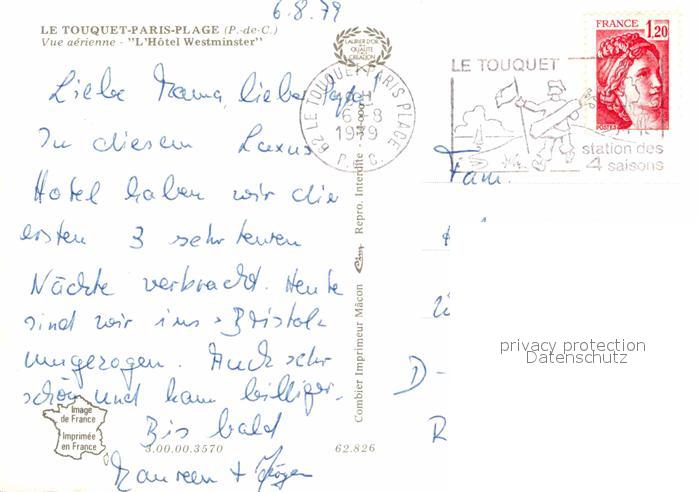 6.8.79
LE TOUQUET-PARIS-PLAGE (P.-de-C.)
Vue aérienne - "L'Hôtel Westminster"
LAURIER D'OR
DE LA
QUALITÉ
DE
CRÉATION
Liebe Mama, lieber Papa
In diesem Luxus
Hotel haben wir die
ersten 3 sehr teuren
Nächte verbracht. Heute
sind wir ins "Bristol"
umgezogen. Auch sehr
schön und kaum billiger.
Bis bald
Maureen + Jürgen
Image
de France
Imprimée
en France
3.00.00.3570
62.826
Combier Imprimeur Mâcon
Cim
Repro. Interdite
62 LE TOUQUET PARIS PLAGE
6-8
1979
P. C.
LE TOUQUET
station des
4 saisons
FRANCE
1,20
POSTES
Fam.
D-
R
privacy protection
Datenschutz